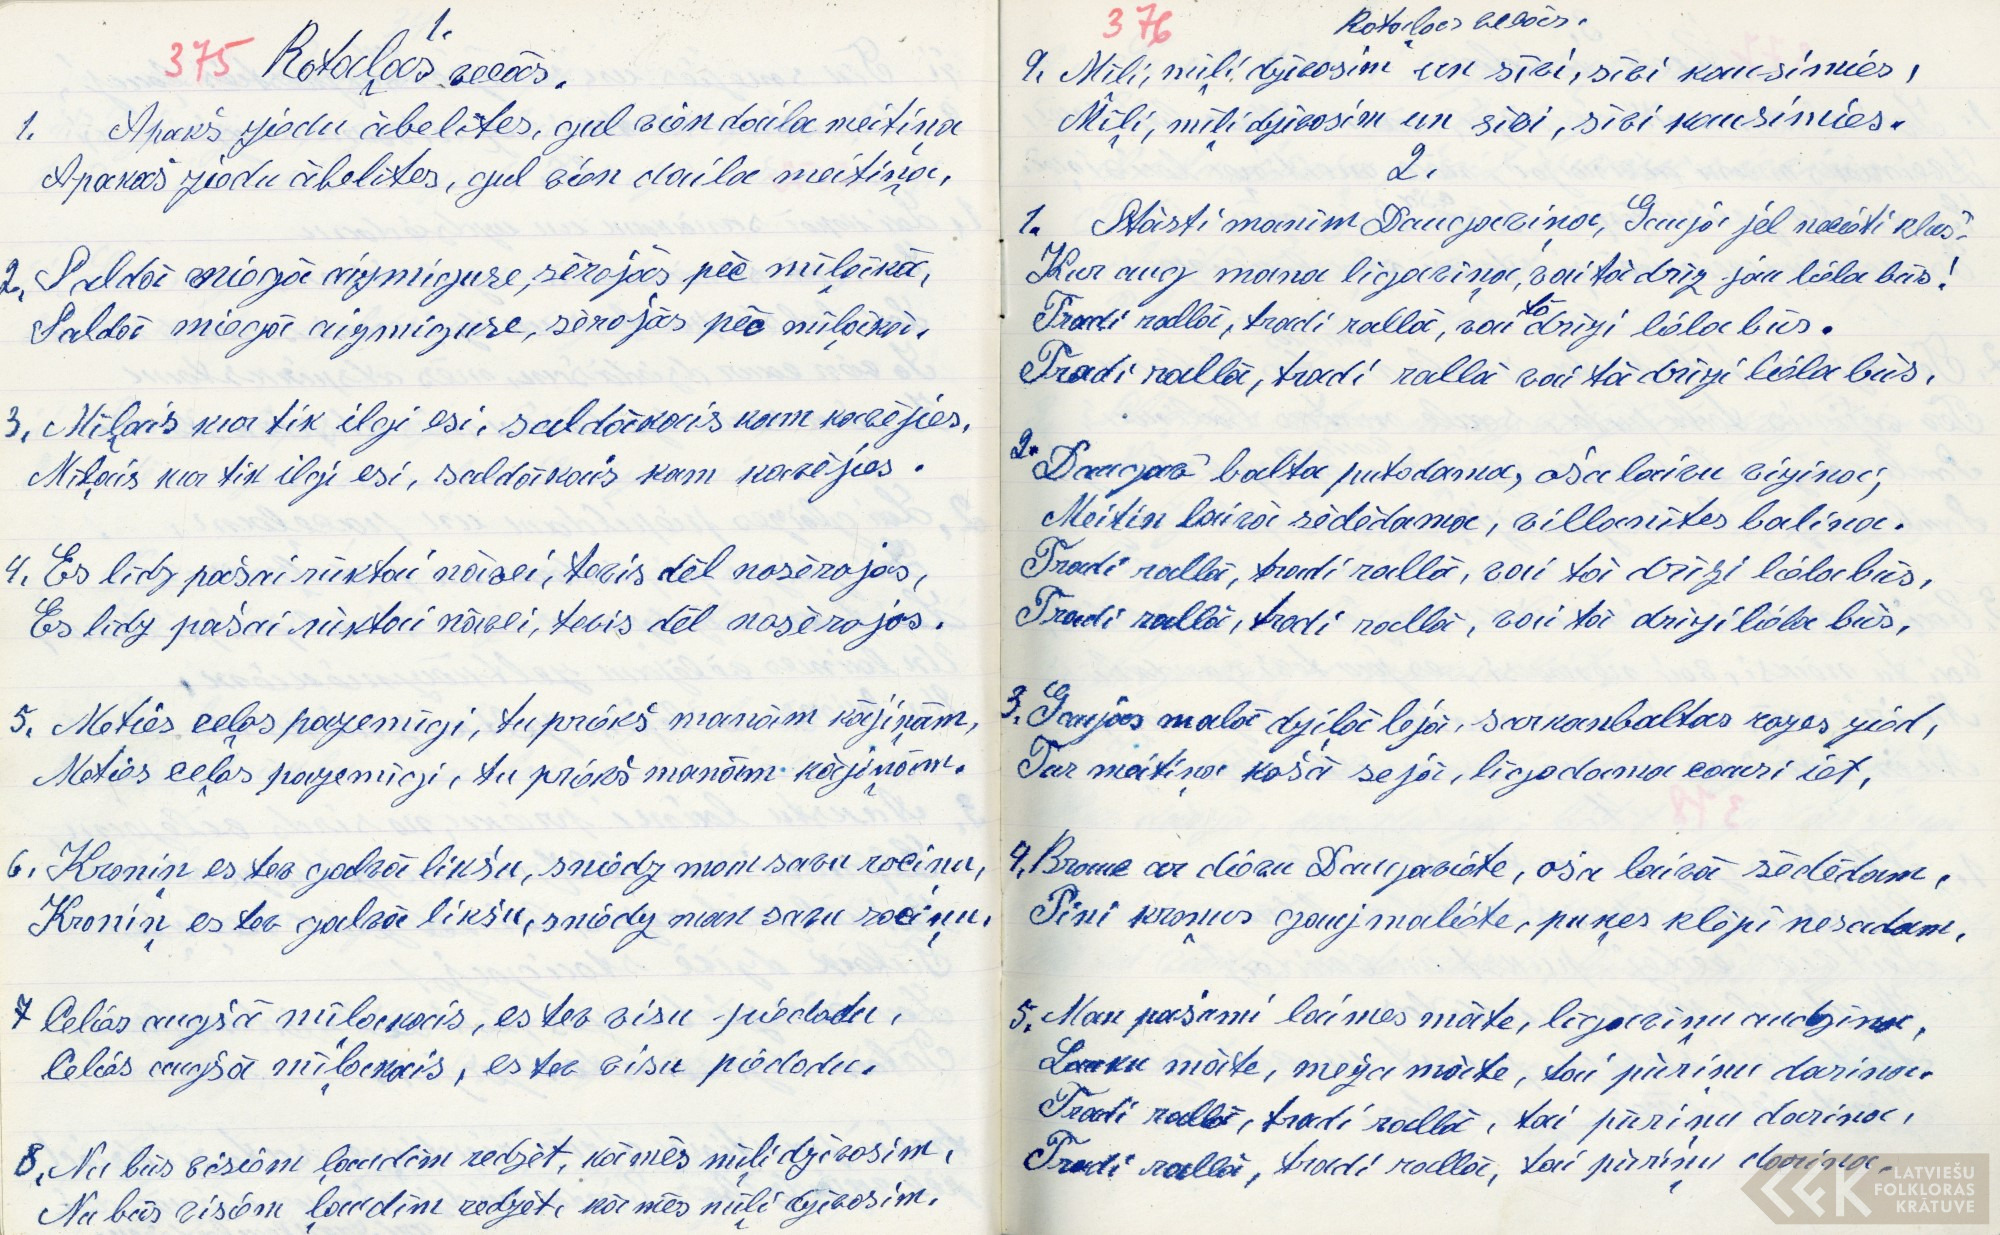 1.
375 Rotaļas vecās.
1. Apakš ziedu ābelītes, gul vien daila meitiņa
Apakš ziedu ābelītes, gul vien daila meitiņa,
2. Saldā miegā aizmiguse, sērojās pēc mīļākā,
Saldā miegā aizmiguse, sērojās pēc mīļākā.
3. Mīļais kur tik ilgi esi, saldākais kam kavējies,
Mīļais kur tik ilgi esi, saldākais kam kavējies.
4. Es līdz pašai rūktai nāvei, tevis dēl nosērojos,
Es līdz pašai rūktai nāvei, tevis dēl nosērojos.
5. Meties ceļos pazemīgi, tu priekš manām kājiņām,
Meties ceļos pazemīgi, tu priekš manām kājiņām.
6. Kroniņ es tev galvā likšu, sniedz man savu rociņu,
Kroniņ es tev galvā likšu, sniedz man savu rociņu.
7 Celies augšā mīļakais, es tev visu piedodu,
Celies augšā mīļakais, es tev visu piedodu.
8. Nu būs visiem ļaudīm redzēt, kā mēs mīļi dzīvosim,
Nu būs visiem ļaudīm redzēt, kā mēs mīļi dzīvosim.
376 Rotaļas vecās.
9. Mīļi, mīļi dzīvosim un sīvi, sīvi kausimies,
Mīļi, mīļi dzīvosim un sīvi, sīvi kausimies.
2.
1. Stāsti manim Daugaviņa, Gauja jel necieti klus.
Kur aug mana līgaviņa, vai tā drīz jau liela būs!
Tradi rallā, tradi rallā, vai tā drīzi liela būs.
Tradi rallā, tradi rallā vai tā drīzi liela būs.
2. Daugav' balta putodama, oša laivu vizina,
Meitiņ laivā sēdēdama, villanītes balina.
Tradi rallā, tradi rallā, vai tā drīzi liela būs,
Tradi rallā, tradi rallā, vai tā drīzi liela būs,
3. Gaujas malā dziļā lejā, sarkanbaltas rozes zied,
Tur meitiņa košā sejā, līgodama cauri iet,
4. Brauc ar dievu Daugaviete, oša laivā sēdēdam,
Pini kroņus gaujmaliete, puķes klēpī nesadam,
5. Man pašami laimes māte, līgaviņu audzina,
Lauku māte, meža māte, tai pūriņu darina.
Tradi rallā, tradi rallā, tai pūriņu darina,
Tradi rallā, tradi rallā, tai pūriņu darina.
LATVIEŠU
FOLKLORAS
KRĀTUVE